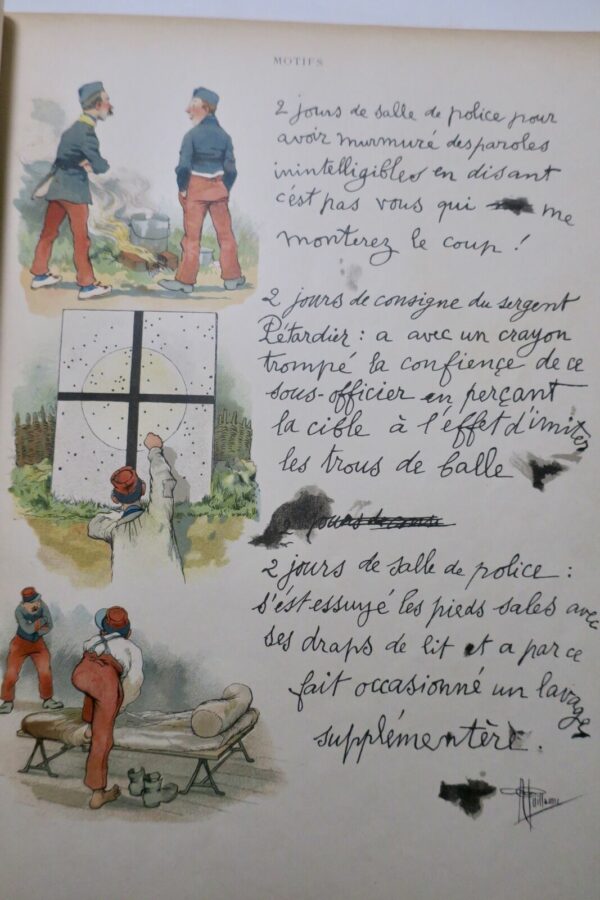 MOTIFS
2 jours de salle de police pour
avoir murmuré des paroles
inintelligibles en disant
c'est pas vous qui me
monterez le coup !
2 jours de consigne du sergent
Pétardier : a avec un crayon
trompé la confiençe de ce
sous-officier en perçant
la cible à l'effet d'imiter
les trous de balle
jours de
2 jours de salle de police :
s'est essuyé les pieds sales avec
ses draps de lit et a par ce
fait occasionné un lavage
supplémentère.
A Guillaume